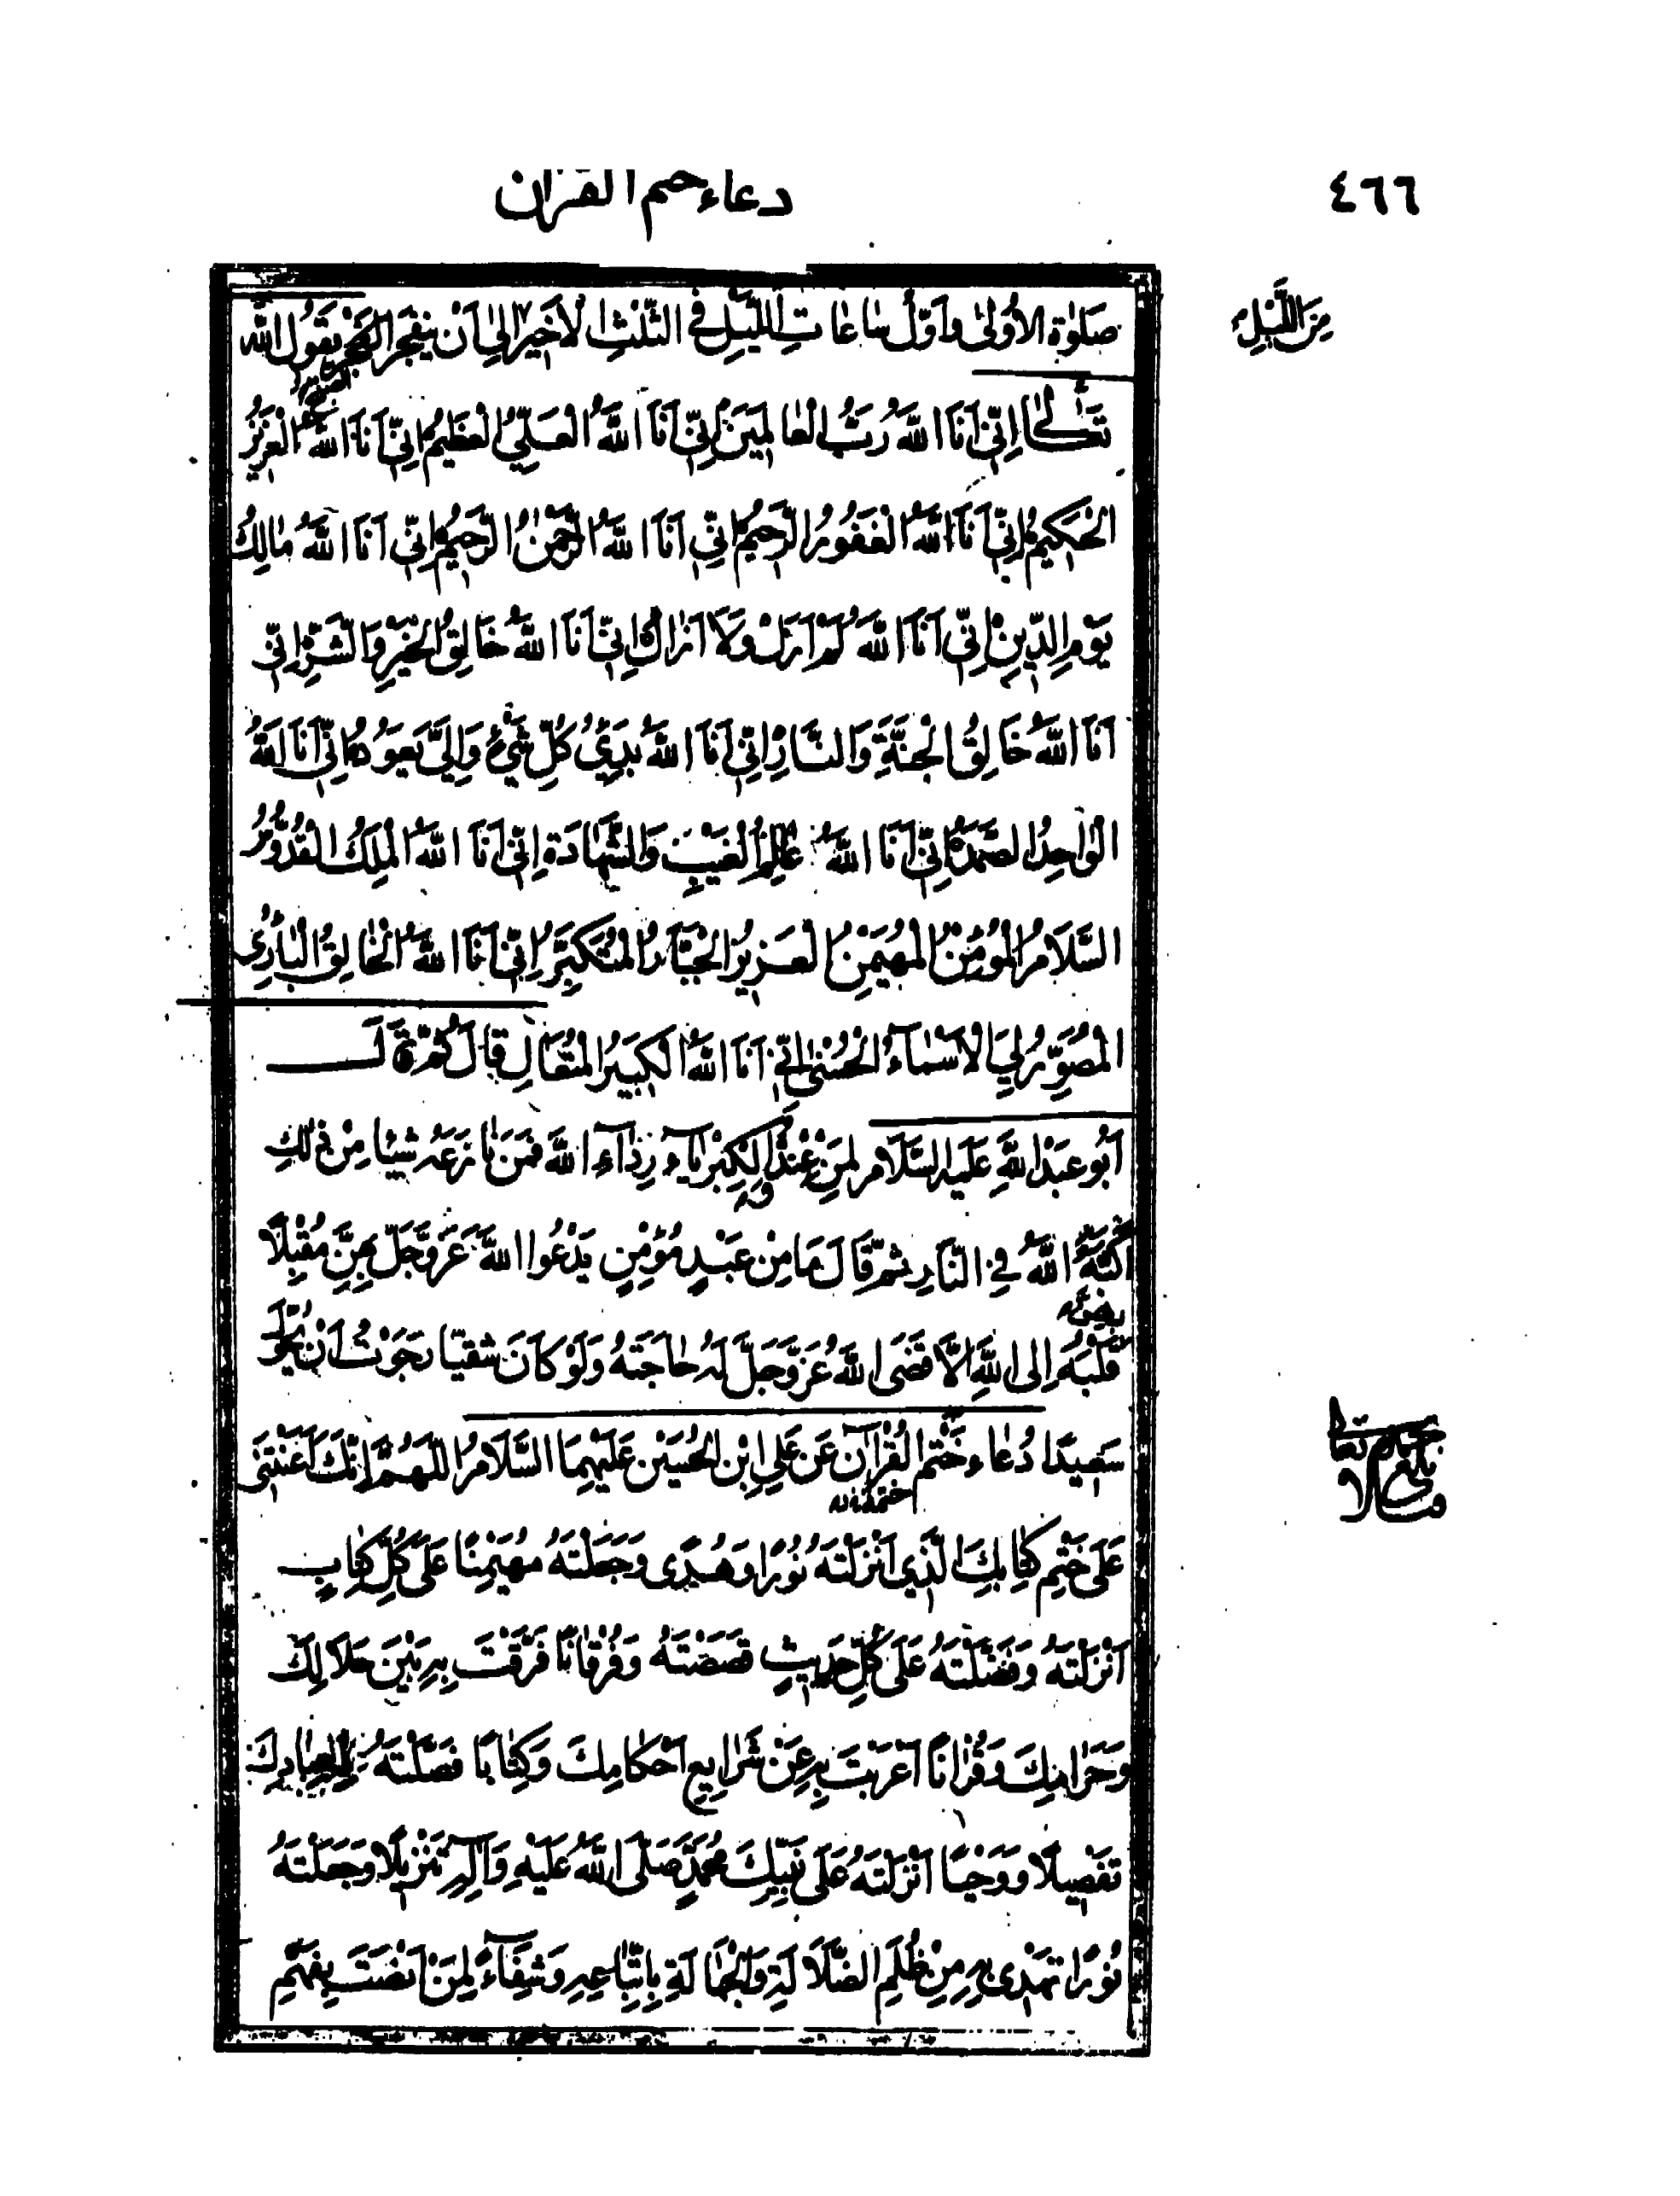 ٤٦٦
دعاء ختم القرآن
صَلوٰةِ الاُولىٰ وَاَوَّلُ سٰاعٰاتِ اللَّيْلِ فِى الثُّلْثِ الْاَخيرِ اِلىٰ اَنْ يَنْفَجِرَ الْفَجْرُ يَقُولُ اللّٰهُ
مِنَ اللَّيْلِ
تَعٰالىٰ اِنّى اَنَا اللّٰهُ رَبُّ الْعٰالَمينَ اِنّى اَنَا اللّٰهُ الْعَلِىُّ الْعَظيمُ اِنّى اَنَا اللّٰهُ الْعَزيزُ
الْحَكيمُ اِنّى اَنَا اللّٰهُ الْغَفُورُ الرَّحيمُ اِنّى اَنَا اللّٰهُ الرَّحْمٰنُ الرَّحيمُ اِنّى اَنَا اللّٰهُ مٰالِكُ
يَوْمِ الدّينِ اِنّى اَنَا اللّٰهُ لَمْ اَزَلْ وَلاٰ اَزٰالُ اِنّى اَنَا اللّٰهُ خَالِقُ الْخَيْرِ وَالشَّرِّ اِنّى
اَنَا اللّٰهُ خَالِقُ الْجَنَّةِ وَالنَّارِ اِنّى اَنَا اللّٰهُ بَدِىُّ كُلِّ شَىْءٍ وَاِلَىَّ يَعُودُ اِنّى اَنَا اللّٰهُ
الْوٰاحِدُ الصَّمَدُ اِنّى اَنَا اللّٰهُ عٰالِمُ الْغَيْبِ وَالشَّهٰادَةِ اِنّى اَنَا اللّٰهُ الْمَلِكُ الْقُدُّوسُ
السَّلَامُ الْمُؤْمِنُ الْمُهَيْمِنُ الْعَزيزُ الْجَبَّارُ الْمُتَكَبِّرُ اِنّى اَنَا اللّٰهُ الْخٰالِقُ الْبٰارِئُ
الْمُصَوِّرُ لِىَ الْاَسْمٰاءُ الْحُسْنىٰ اِنّى اَنَا اللّٰهُ الْكَبيرُ الْمُتَعَالِ قٰالَ ثُمَّ قَالَ
اَبُو عَبْدِ اللّٰهِ عَلَيْهِ السَّلَامُ لِمَنْ عِنْدَهُ وَالْكِبْرِيٰاءُ رِدٰاءُ اللّٰهِ فَمَنْ نٰازَعَهُ شَيْئًا مِنْ ذٰلِكَ
اَكَبَّهُ اللّٰهُ فِى النَّارِ ثُمَّ قَالَ مَا مِنْ عَبْدٍ مُؤْمِنٍ يَدْعُوا اللّٰهَ عَزَّ وَجَلَّ بِهِنَّ مُقْبِلًا
قَلْبُهُ اِلَى اللّٰهِ اِلَّا قَضَى اللّٰهُ عَزَّ وَجَلَّ لَهُ حٰاجَتَهُ وَلَوْ كَانَ شَقِيًّا رَجَوْتُ اَنْ يُحَوَّلَ
سَعيدًا دُعٰاء خَتْمِ الْقُرْاٰنِ عَنْ عَلِىِّ ابْنِ الْحُسَيْنِ عَلَيْهِمَا السَّلَامُ اَللّٰهُمَّ اِنَّكَ اَعَنْتَنى
عَلىٰ خَتْمِ كِتٰابِكَ الَّذى اَنْزَلْتَهُ نُورًا وَهُدًى وَجَعَلْتَهُ مُهَيْمِنًا عَلىٰ كُلِّ كِتٰابٍ
اَنْزَلْتَهُ وَفَضَّلْتَهُ عَلىٰ كُلِّ حَديثٍ قَصَصْتَهُ وَفُرْقٰانًا فَرَّقْتَ بِهِ بَيْنَ حَلَالِكَ
وَحَرٰامِكَ وَقُرْاٰنًا اَعْرَبْتَ بِهِ عَنْ شَرٰايِعِ اَحْكٰامِكَ وَكِتٰابًا فَصَّلْتَهُ لِعِبٰادِكَ
تَفْصيلًا وَوَحْيًا اَنْزَلْتَهُ عَلىٰ نَبِيِّكَ مُحَمَّدٍ صَلَّى اللّٰهُ عَلَيْهِ وَاٰلِهِ تَنْزيلًا وَجَعَلْتَهُ
نُورًا نَهْتَدى بِهِ مِنْ ظُلَمِ الضَّلَالَةِ وَالْجَهٰالَةِ بِاتِّبٰاعِهِ وَشِفٰاءً لِمَنْ اَنْصَتَ بِفَهْمِ